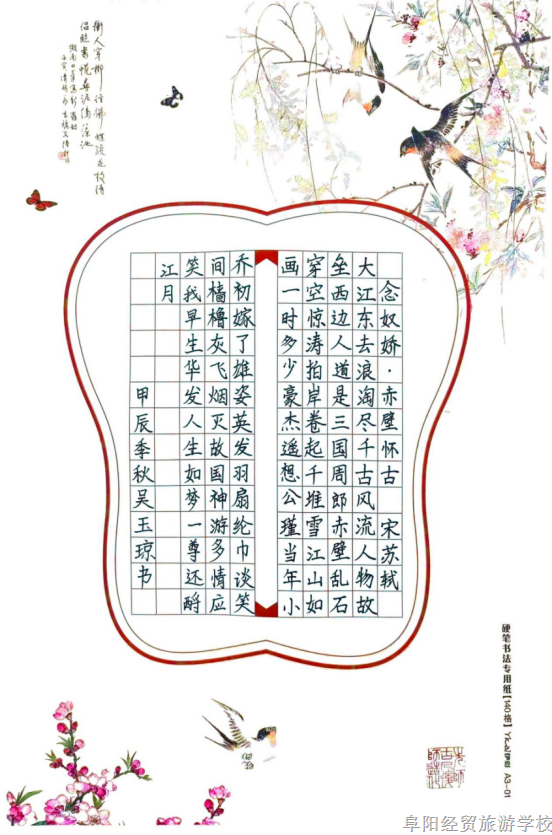 念奴娇·赤壁怀古 宋苏轼
大江东去浪淘尽千古风流人物故
垒西边人道是三国周郎赤壁乱石
穿空惊涛拍岸卷起千堆雪江山如
画一时多少豪杰遥想公瑾当年小
乔初嫁了雄姿英发羽扇纶巾谈笑
间樯橹灰飞烟灭故国神游多情应
笑我早生华发人生如梦一尊还酹
江月
甲辰季秋吴玉琼书
硬笔书法专用纸【140格】 A3-01
阜阳经贸旅游学校